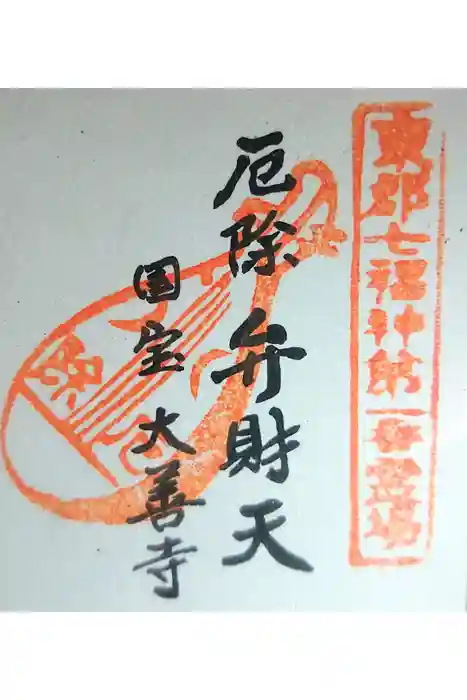 東郡七福神第一番霊場
厄除 弁財天
国宝 大善寺